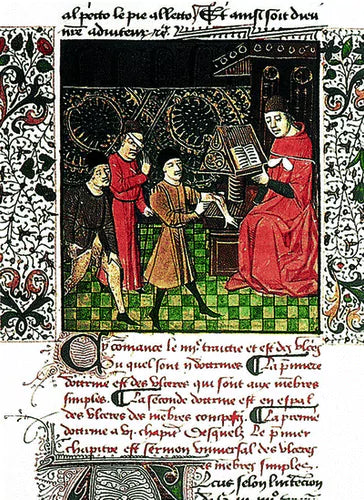 al porto le pie allecto / Et ainsi soit dieu
me adiuteur
Cy comance le iiije traictie et est des vlce
ou quel sont ii doctrines La pmiere
doctrine est des vlceres qui sont aux mēbres
simples La seconde doctrine est en espal
des vlceres des mēbres composz La pmie
doctrine a vi chapit Desquelz Le pmier
chapitre est sermon vniversal des vlceres
es mēbres simples
cus selon lintēcion